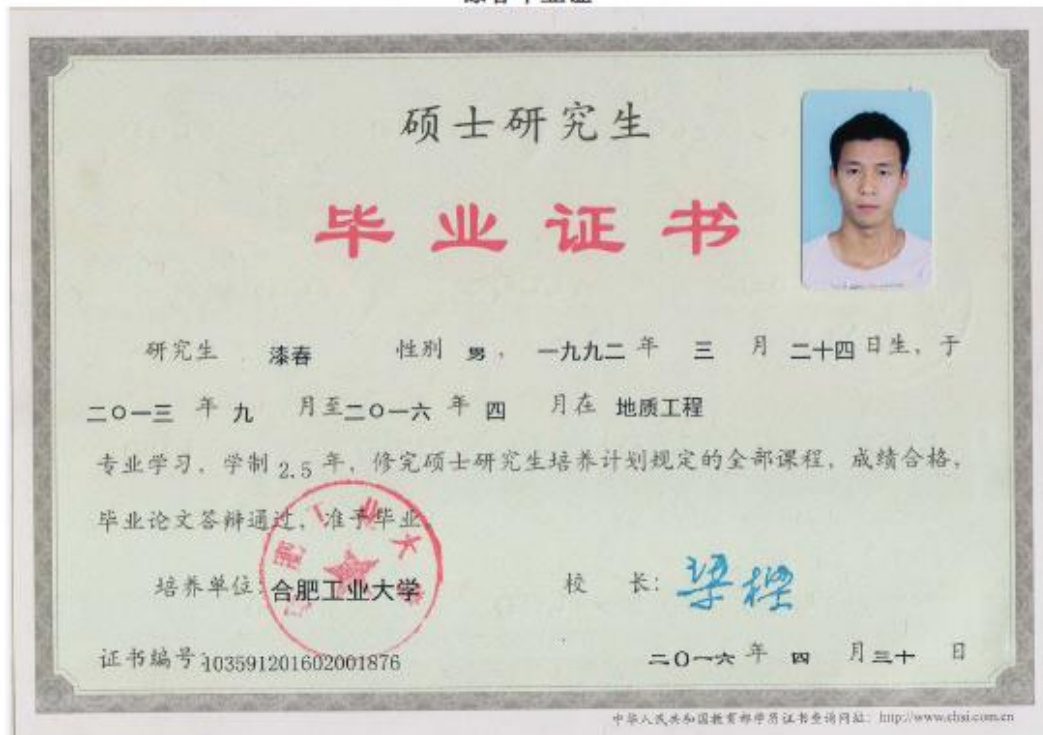 漆春毕业证
硕士研究生
毕业证书
研究生 漆春 性别 男, 一九九二 年 三 月 二十四 日生, 于
二〇一三 年 九 月至 二〇一六 年 四 月在 地质工程
专业学习, 学制 2.5 年, 修完硕士研究生培养计划规定的全部课程, 成绩合格,
毕业论文答辩通过, 准予毕业。
培养单位: 合肥工业大学 校 长: 梁樑
证书编号: 103591201602001876 二〇一六 年 四 月 三十 日
中华人民共和国教育部学历证书查询网址: http://www.chsi.com.cn